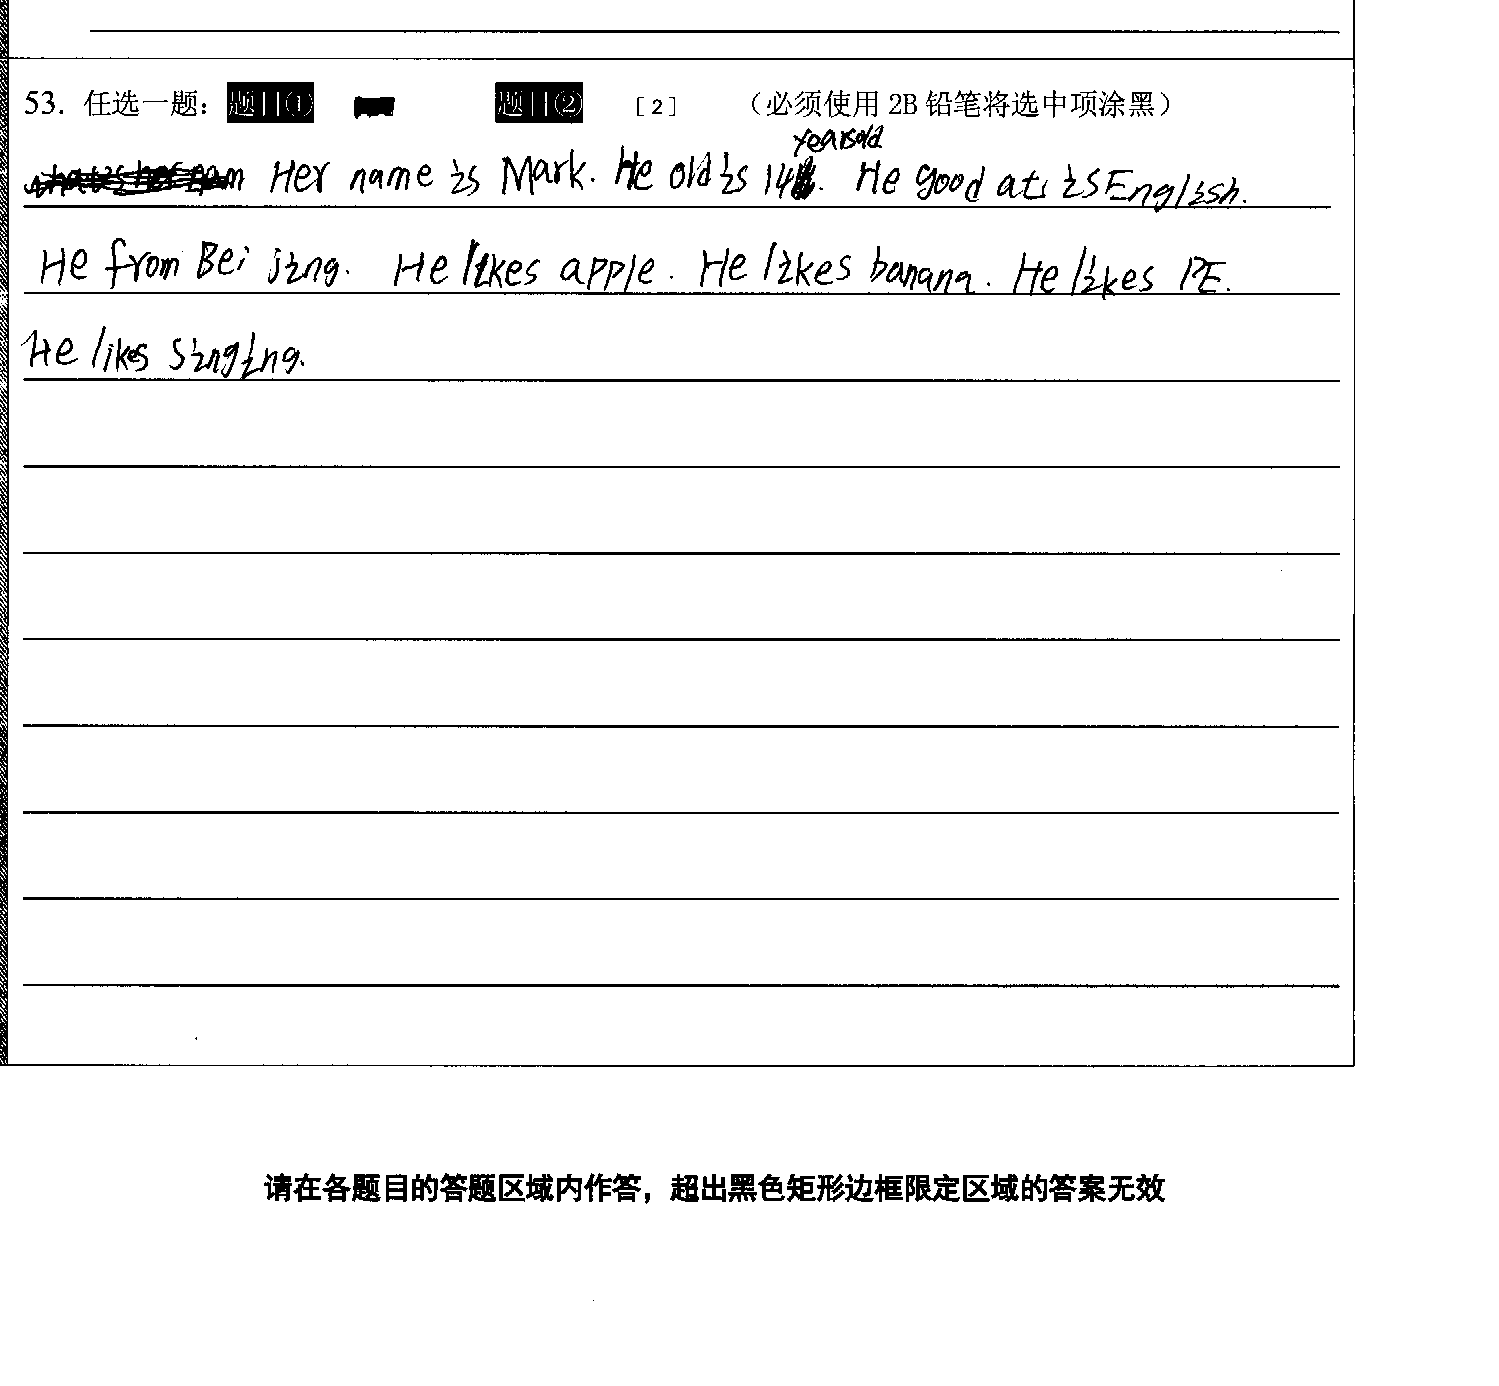 53. 任选一题： 题目① 题目② [2] （必须使用 2B 铅笔将选中项涂黑）
years old
Her name is Mark. He old is 14. He good at is English.
He from Bei jing. He likes apple. He likes banana. He likes PE.
He likes singing.
请在各题目的答题区域内作答，超出黑色矩形边框限定区域的答案无效